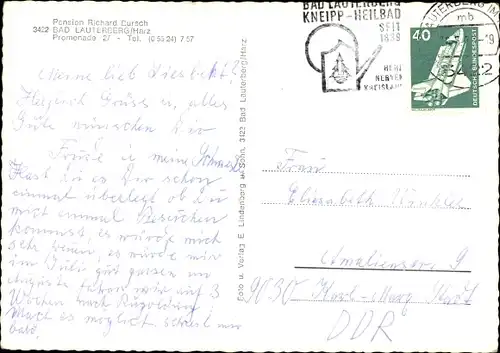 Pension Richard Dursch
3422 BAD LAUTERBERG/Harz
Promenade 27 - Tel. (0 55 24) 7 57
Meine lieb
Herzlich Grüße es, alles
Gute wünschen wir
u meine
Hast du es Dir schon
einmal überlegt ob du
mich einmal Besuchen
kommst, es würde mich
sehr freuen, es würde mir
im Juli gut passen im
Auguste fahren wir auf 3
Wochen nach
Mach es möglich schreib mir
bald.
Foto u. Verlag E. Lindenberg u. Sohn, 3122 Bad Lauterberg/Harz
BAD LAUTERBERG
KNEIPP-HEILBAD
SEIT
1839
HERZ
NERVEN
KREISLAUF
LAUTERBERG IM
mb
3422
40
DEUTSCHE BUNDESPOST
Frau
Elisabeth Winkler
Amalienstr. 9
9030 Karl-Marx Stadt
DDR